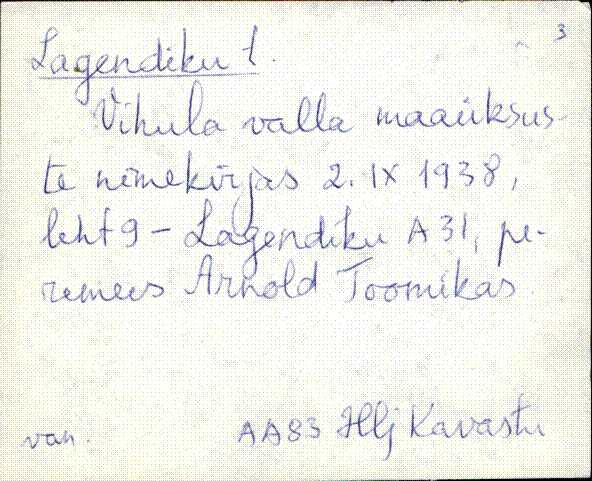 3
Lagendiku t.
Vihula valla maaüksus-
te nimekirjas 2. IX 1938,
leht 9 - Lagendiku A 31, pe-
remees Arnold Toomikas.
van. AA83 Hlj Kavastu